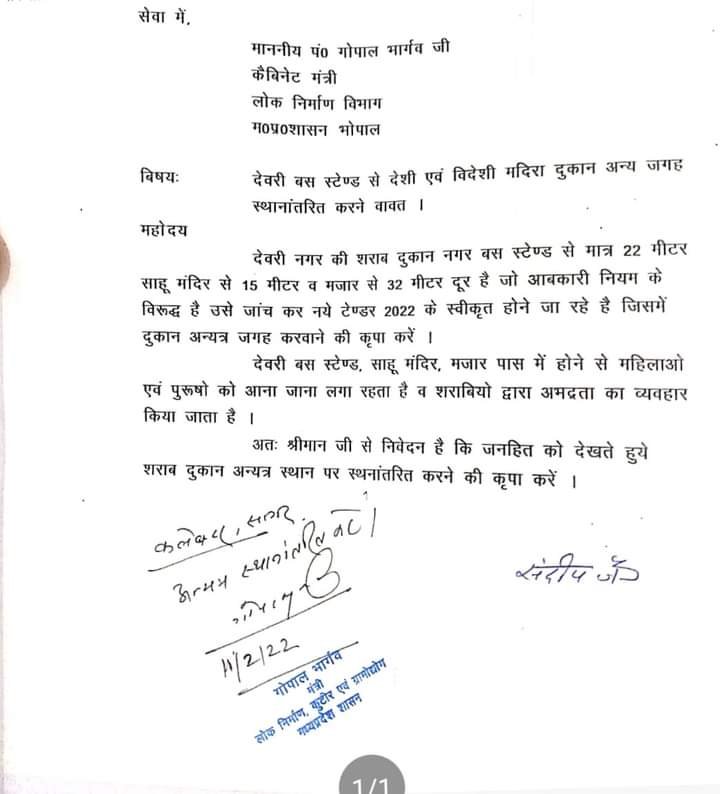 सेवा में,
माननीय पं० गोपाल भार्गव जी
कैबिनेट मंत्री
लोक निर्माण विभाग
म०प्र०शासन भोपाल
विषयः देवरी बस स्टेण्ड से देशी एवं विदेशी मदिरा दुकान अन्य जगह
स्थानांतरित करने वावत ।
महोदय
देवरी नगर की शराब दुकान नगर बस स्टेण्ड से मात्र 22 मीटर
साहू मंदिर से 15 मीटर व मजार से 32 मीटर दूर है जो आबकारी नियम के
विरूद्ध है उसे जांच कर नये टेण्डर 2022 के स्वीकृत होने जा रहे है जिसमें
दुकान अन्यत्र जगह करवाने की कृपा करें ।
देवरी बस स्टेण्ड, साहू मंदिर, मजार पास में होने से महिलाओ
एवं पुरूषो को आना जाना लगा रहता है व शराबियो द्वारा अमद्रता का व्यवहार
किया जाता है ।
अतः श्रीमान जी से निवेदन है कि जनहित को देखते हुये
शराब दुकान अन्यत्र स्थान पर स्थनांतरित करने की कृपा करें ।
कलेक्टर, सागर
अन्यत्र स्थानांतरित करें।
संदीप जैन
11/2/22
गोपाल भार्गव
मंत्री
लोक निर्माण, कुटीर एवं ग्रामोद्योग
मध्यप्रदेश शासन
1/1